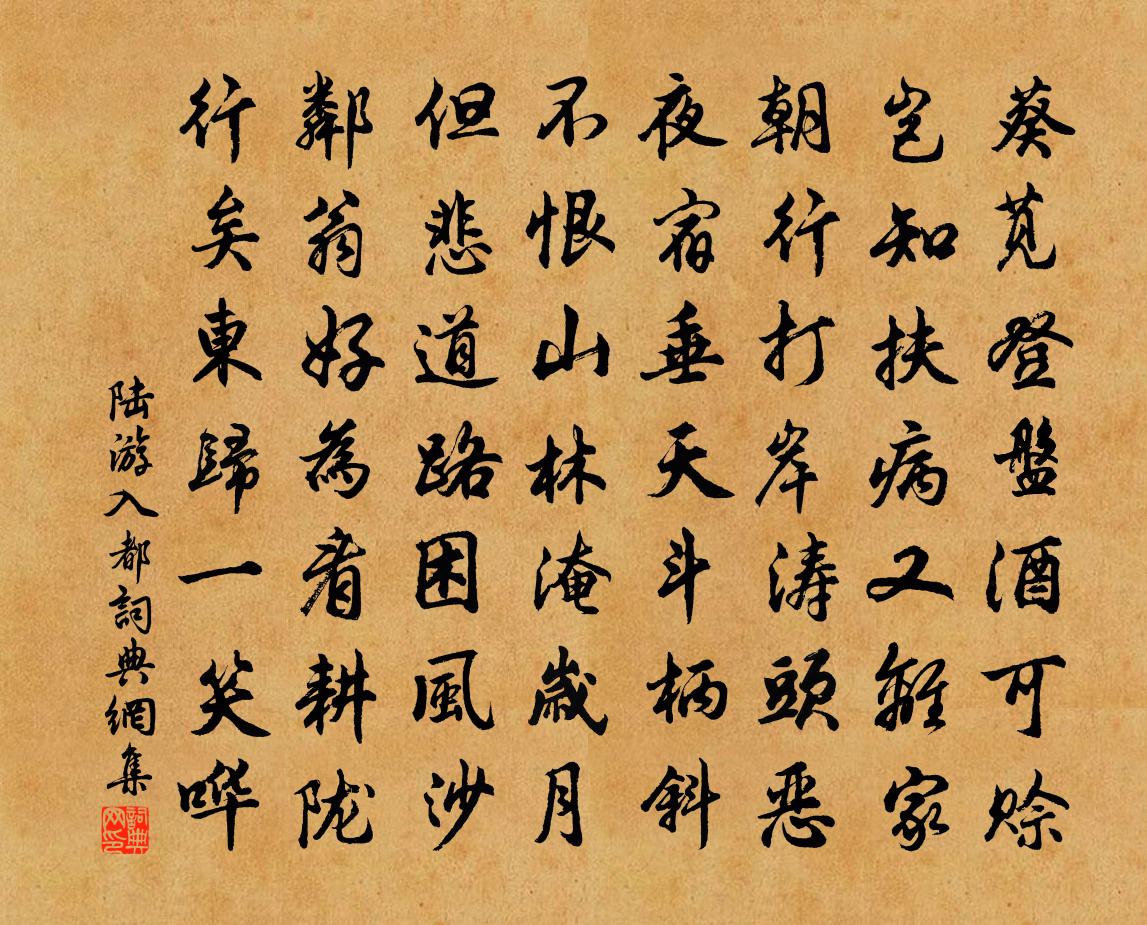 葵苋登盤酒可賒
豈知扶病又離家
朝行打岸涛頭恶
夜宿垂天斗柄斜
不恨山林淹歲月
但悲道路困風沙
鄰翁好為看耕陇
行矣東歸一笑哗
陸游入都詞典網集
詞典网印